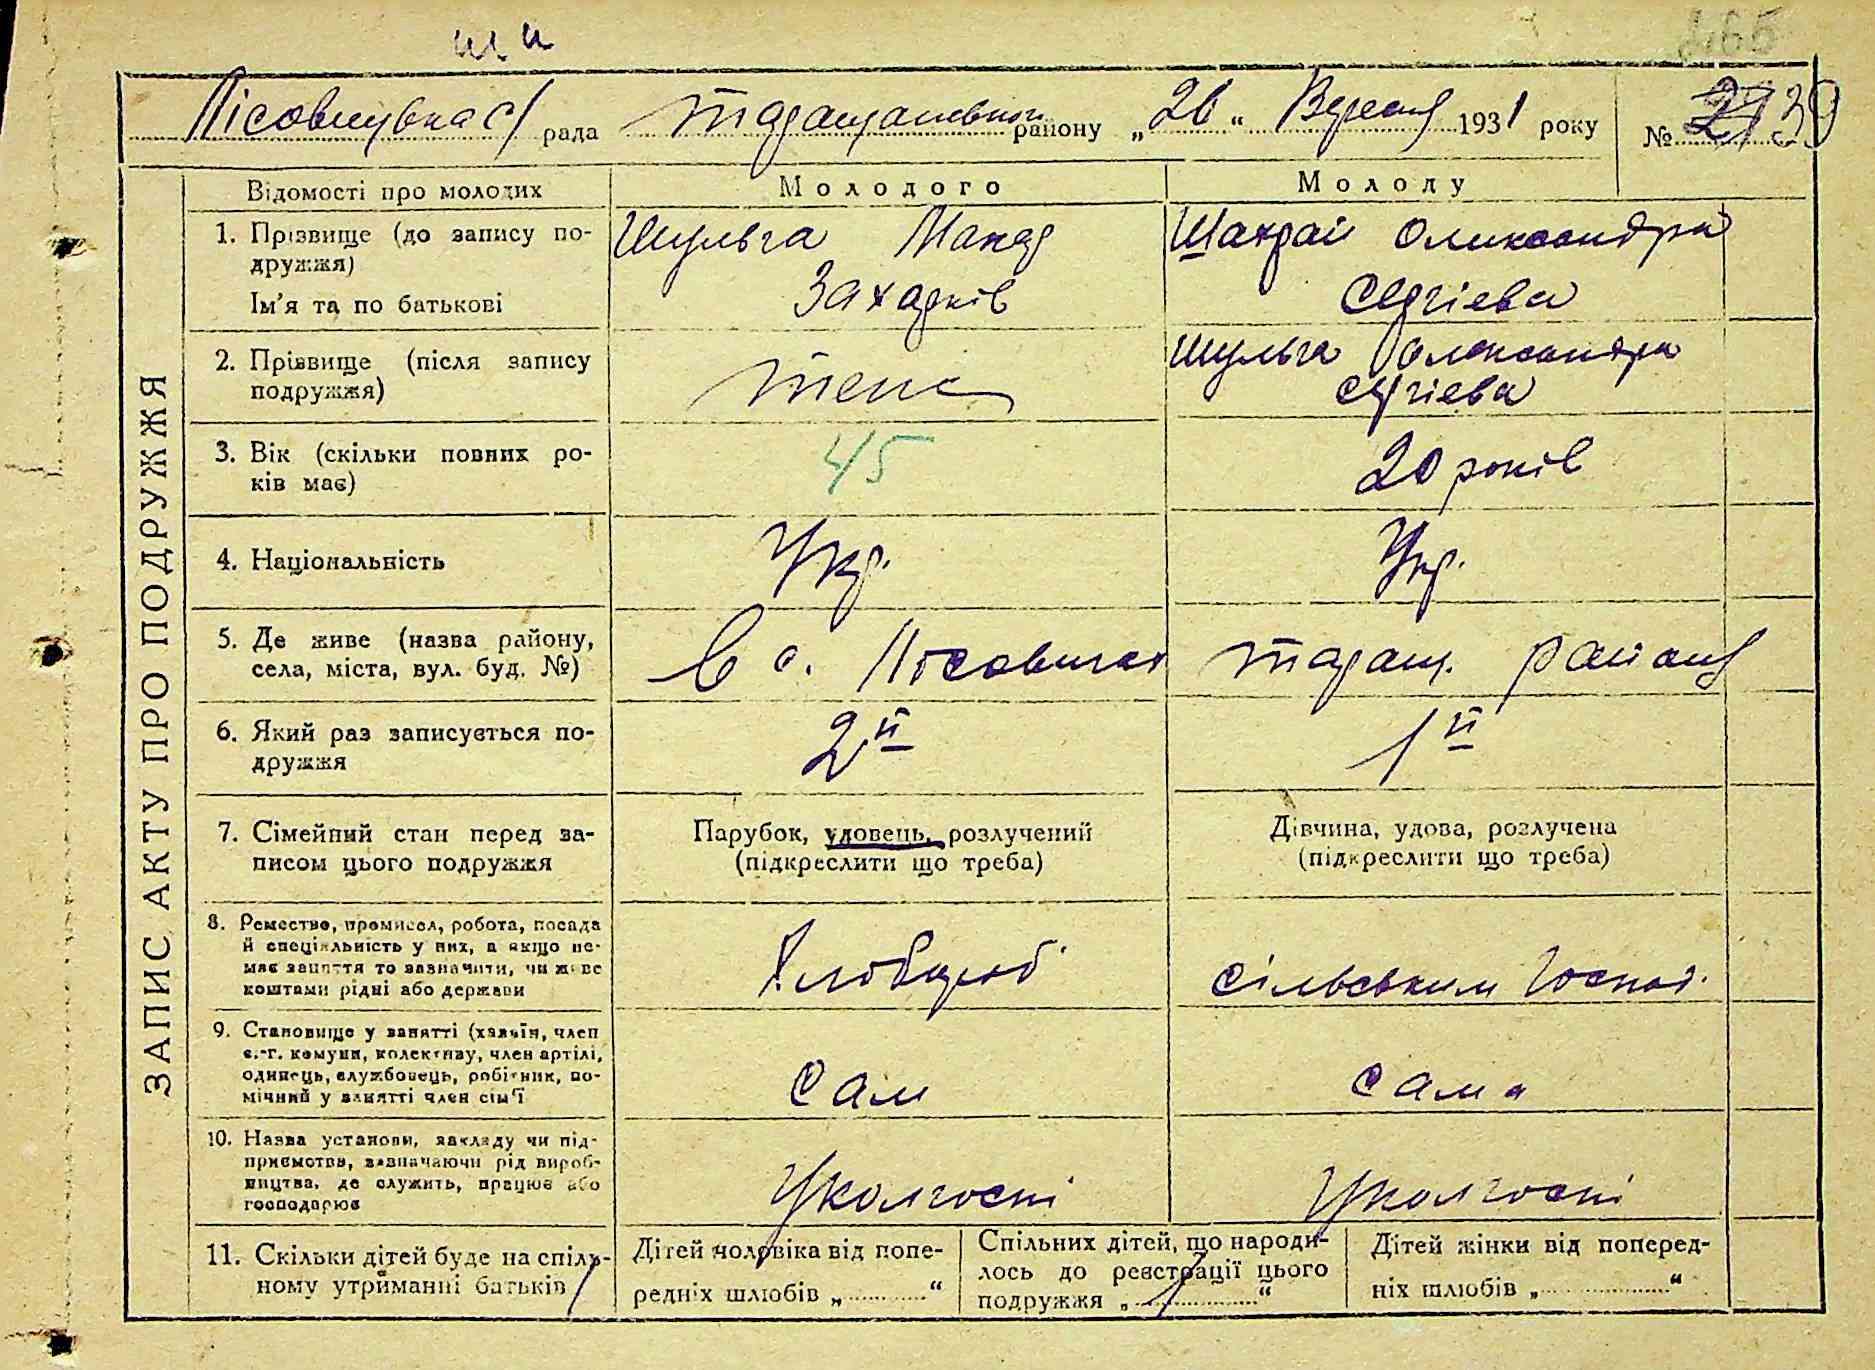 Лісовицька с/рада Таращанського району „26“ Вересня 1931 року № 39
ЗАПИС АКТУ ПРО ПОДРУЖЖЯ
Відомості про молодих
Молодого
Молоду
1. Прізвище (до запису по-
дружжя)
Ім'я та по батькові
Шульга Макар
Захарків
Шахрай Олександра
Сергієва
2. Прізвище (після запису
подружжя)
теж
Шульга Олександра
Сергієва
3. Вік (скільки повних ро-
ків має)
45
20 років
4. Національність
Укр.
Укр.
5. Де живе (назва району,
села, міста, вул. буд. №)
в с. Лісовичах
Таращ. району
6. Який раз записується по-
дружжя
2й
1й
7. Сімейний стан перед за-
писом цього подружжя
Парубок, удовець, розлучений
(підкреслити що треба)
Дівчина, удова, розлучена
(підкреслити що треба)
8. Ремество, промисел, робота, посада
й спеціяльність у них, а якщо не-
має заняття то зазначити, чи живе
коштами рідні або держави
Хлібороб
сільським госпо.
9. Становище у занятті (хазяїн, член
с.-г. комуни, колективу, член артілі,
одинець, службовець, робітник, по-
мічний у занятті член сім'ї
сам
сама
10. Назва установи, закладу чи під-
приємства, зазначаючи рід вироб-
ництва, де служить, працює або
господарює
У колгоспі
У колгоспі
11. Скільки дітей буде на спіль-
ному утриманні батьків
Дітей чоловіка від попе-
редніх шлюбів „ “
Спільних дітей, що народи-
лось до реєстрації цього
подружжя „ “
Дітей жінки від поперед-
ніх шлюбів „ “